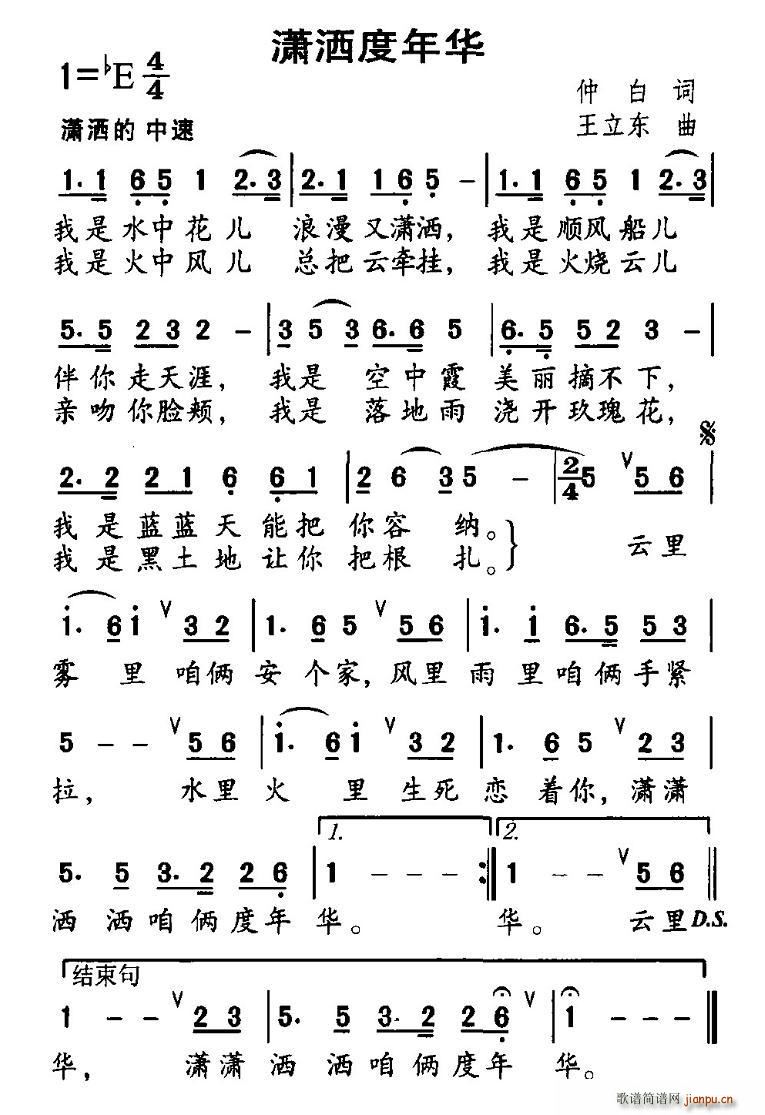 潇洒度年华
1=♭E 4/4
仲白 词
潇洒的 中速
王立东 曲
1·1 6 5 1 2·3 | 2·1 1 6·5 - | 1·1 6 5 1 2·3
我是水中花儿 浪漫又潇洒，我是顺风船儿
我是火中风儿 总把云牵挂，我是火烧云儿
5·5 2 3 2 - | 3 5 3 6·6 5 | 6·5 5 2 3 - |
伴你走天涯，我是 空中霞 美丽摘不下，
亲吻你脸颊，我是 落地雨 浇开玫瑰花，
2·2 2 1 6 6 1 | 2 6 3 5 - | 2/4 5 ∨ 5 6 |
我是蓝蓝天能把 你容 纳。
我是黑土地让你 把根 扎。 云里
1· 6 1 ∨ 3 2 | 1· 6 5 ∨ 5 6 | 1· 1 6·5 5 3 |
雾 里 咱俩 安 个家，风里 雨 里咱俩手紧
5 - - ∨ 5 6 | 1· 6 1 ∨ 3 2 | 1· 6 5 ∨ 2 3 |
拉， 水里 火 里 生死 恋 着你，潇潇
1. 2.
5· 5 3·2 2 6 | 1 - - :| 1 - - ∨ 5 6 ||
洒 洒咱俩度年 华。 华。 云里 D.S.
结束句
1 - - ∨ 2 3 | 5· 5 3·2 2 6 ∨ | 1 - - - ||
华， 潇潇 洒 洒咱俩度年 华。
歌谱简谱网 jianpu.cn